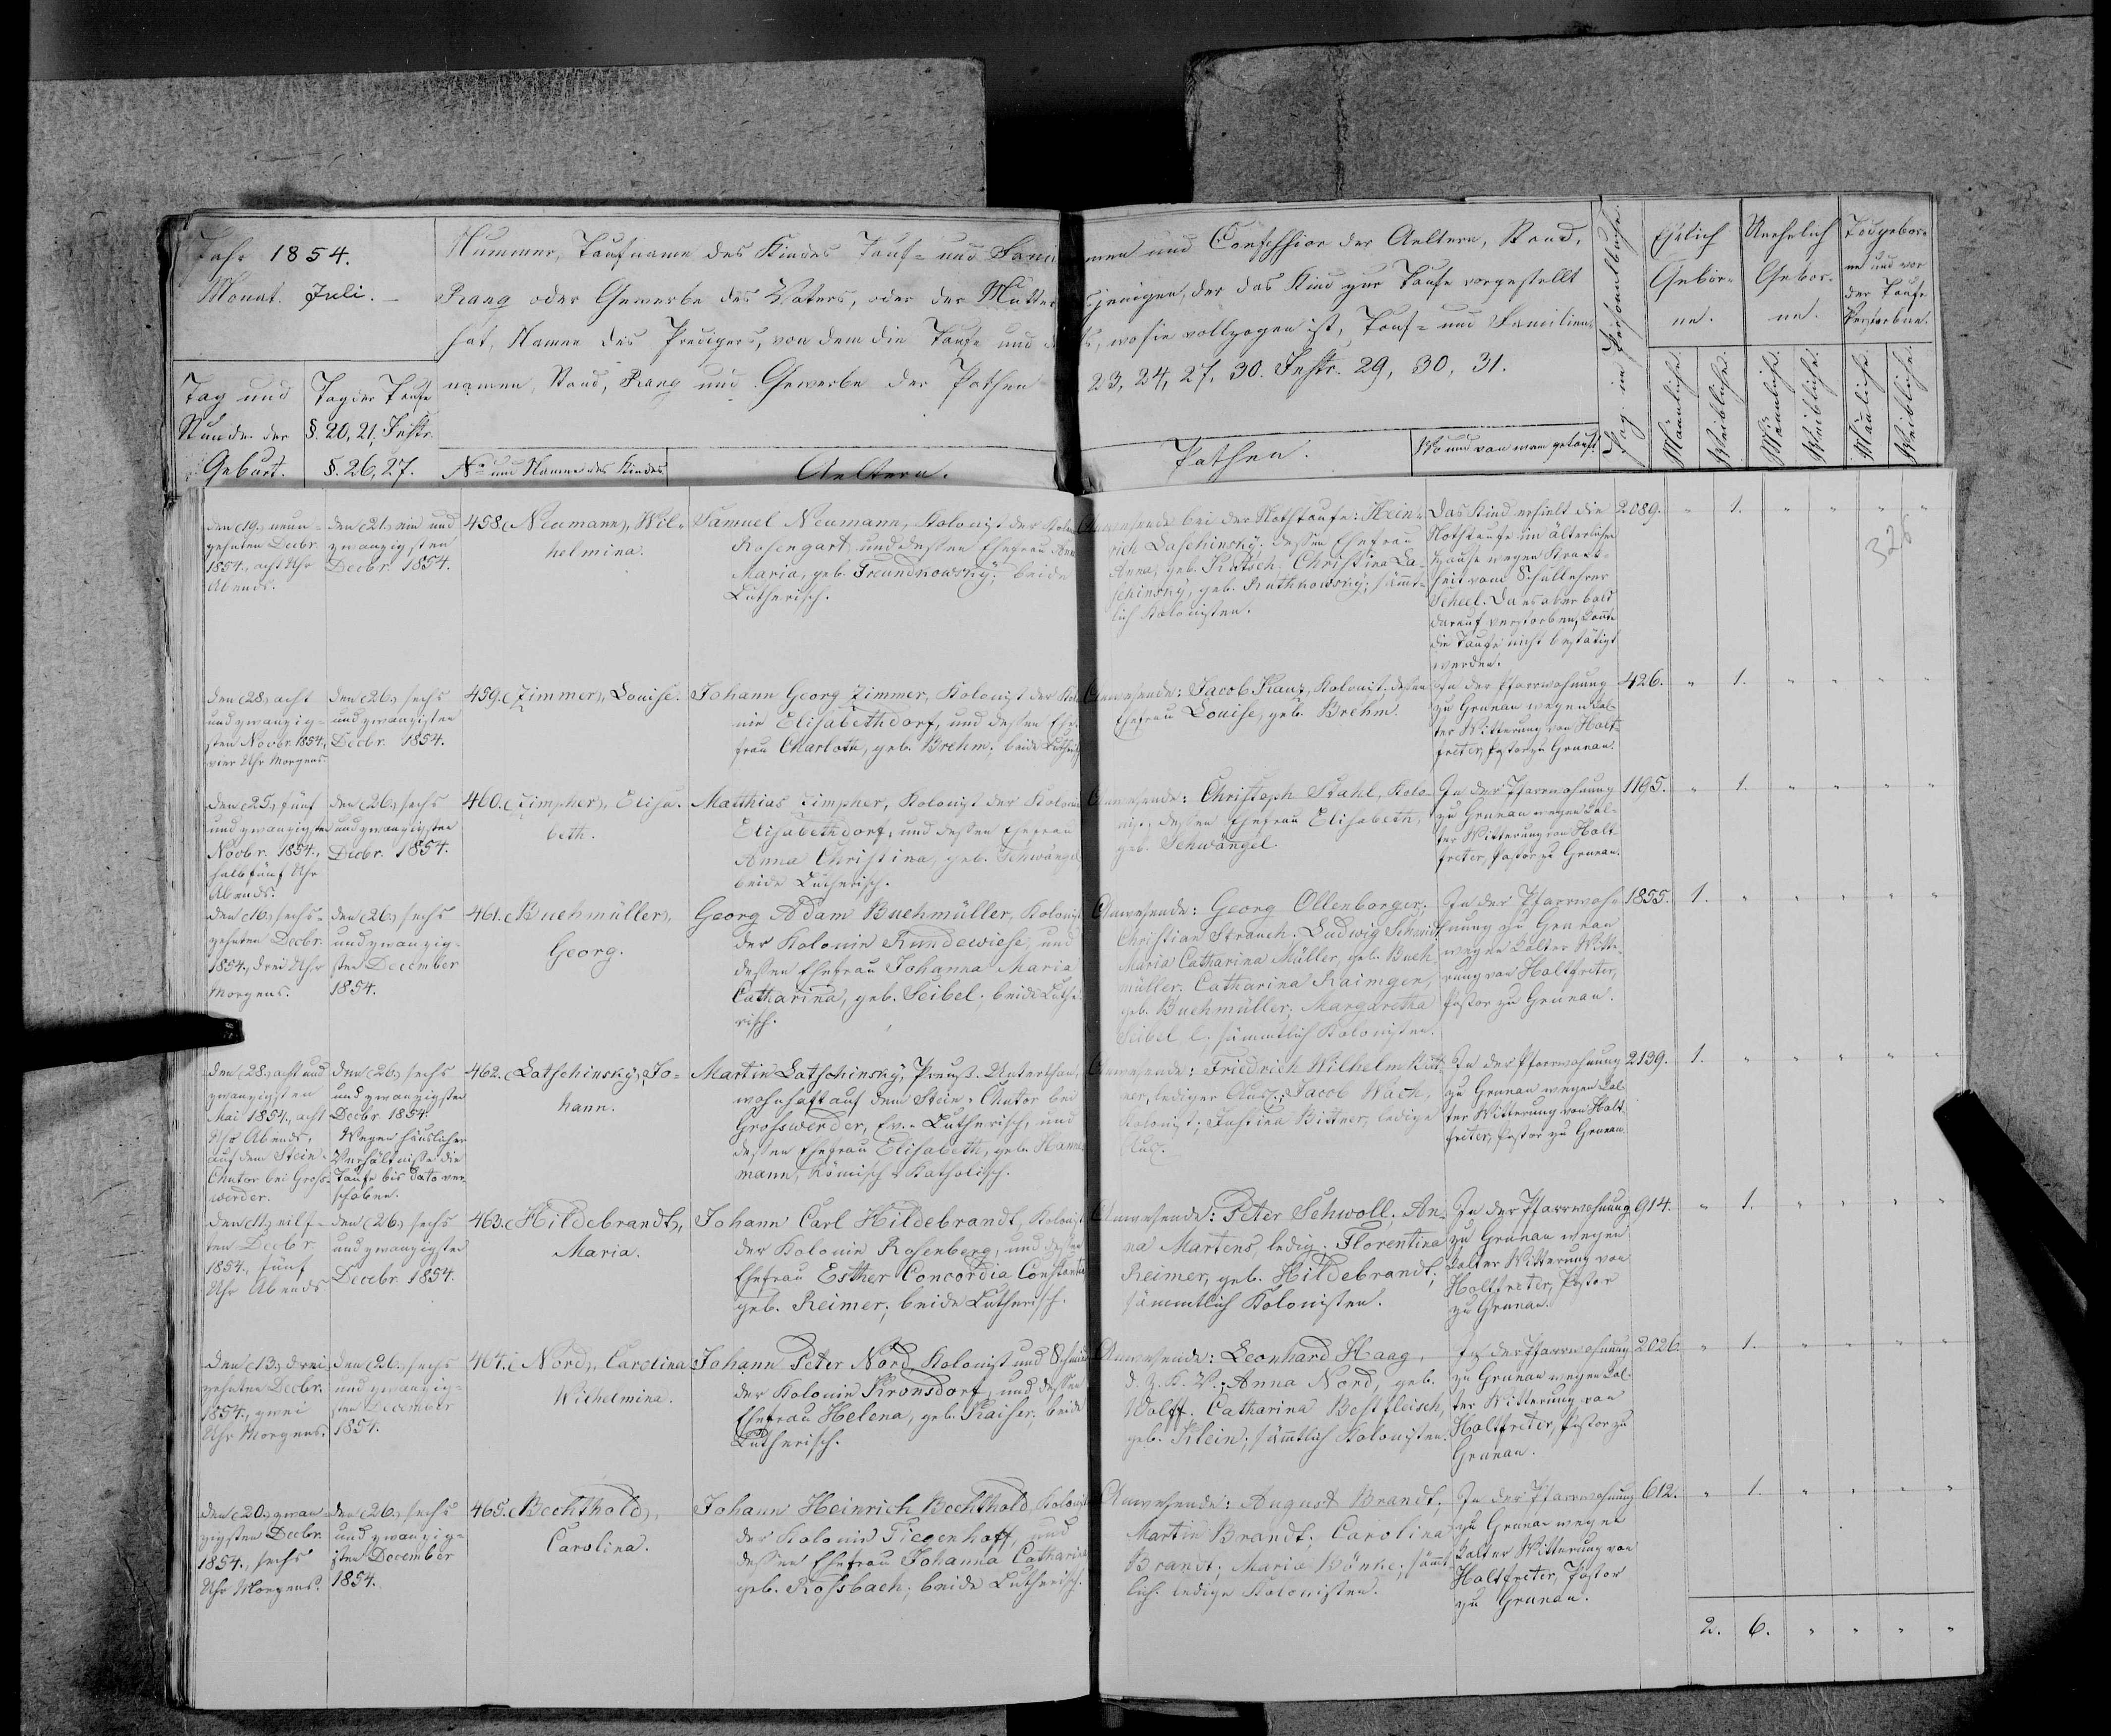 Jahr 1854.
Monat. Juli. —
Tag und
Stunde der
Geburt.
Tag der Taufe
§. 20, 21, Instr.
§. 26, 27.
Nummer, Taufname des Kindes Tauf- und Famili
Rang oder Gewerbe des Vaters, oder der Mutter
hat, Namen des Predigers, von dem die Taufe und
namen, Stand, Rang und Gewerbe der Pathen
No und Name des Kindes
Aeltern.
men und Confession der Aeltern, Stand,
jenigen, der das Kind zur Taufe vorgestellt
wo sie vollzogen ist, Tauf- und Familien-
23, 24, 27, 30. Instr. 29, 30, 31.
Pathen.
Wo und von wem getauft
Pag. im Personalbuche.
Ehelich
Gebor-
ne.
Unehelich
Gebor-
ne.
Todgebor-
ne und vor
der Taufe
Verstorbene.
Männliche.
Weibliche.
Männliche.
Weibliche.
Männliche.
Weibliche.
326
den (19.) neun-
zehnten Decbr.
1854., acht Uhr
Abends.
den (21.) ein und
zwanzigsten
Decbr. 1854.
458. (Neumann), Wil-
helmina.
Samuel Neumann, Kolonist der
Rosengart, und dessen Ehefrau
Maria, geb. Freundkowsky; beide
Lutherisch.
Anwesende bei der Nothtaufe: Hein-
rich Laschinsky; dessen Ehefrau
Anna, geb. Christina La-
schinsky, geb. Ruthkowsky; sämmt-
lich Kolonisten.
Das Kind erhielt die
Nothtaufe im älterlichen
Hause wegen Krank-
heit vom Schullehrer
Scheel. Da es aber bald
darauf verstorben, konnte
die Taufe nicht bestätigt
werden.
2089. " 1. " " " "
den (28.) acht
und zwanzig-
sten Novbr. 1854.,
vier Uhr Morgens.
den (26.) sechs
und zwanzigsten
Decbr. 1854.
459. (Zimmer), Louise.
Johann Georg Zimmer, Kolonist der Kolo
nie Elisabethdorf, und dessen Ehe-
frau Charlotte, geb. Brehm; beide Luther
Anwesende: Jacob Kolonist, dessen
Ehefrau Louise, geb. Brehm.
In der Pfarrwohnung
zu Grunau wegen kal-
ter Witterung von Holt-
freter, Pastor zu Grunau.
426. " 1. " " " "
den (25.) fünf
und zwanzigsten
Novbr. 1854.,
halb fünf Uhr
Abends.
den (26.) sechs
und zwanzigsten
Decbr. 1854.
460. (Zimpher), Elisa-
beth.
Matthias Zimpher, Kolonist der Kolonie
Elisabethdorf, und dessen Ehefrau
Anna Christina, geb. Schwängel
beide Lutherisch.
Anwesende: Christoph Stahl, Kolo-
nist, dessen Ehefrau Elisabeth,
geb. Schwängel.
In der Pfarrwohnung
zu Grunau wegen kal-
ter Witterung von Holt-
freter, Pastor zu Grunau.
1195. " 1. " " " "
den (16.) sechs-
zehnten Decbr.
1854., drei Uhr
Morgens.
den (26.) sechs
und zwanzig-
sten December
1854.
461. (Buchmüller),
Georg.
Georg Adam Buchmüller, Kolonist
der Kolonie Rundewiese, und
dessen Ehefrau Johanna Maria
Catharina, geb. Seibel; beide Luthe-
risch.
Anwesende: Georg Ollenborger;
Christian Strauch; Ludwig Schmidt
Maria Catharina Müller, geb. Buch-
müller; Catharina Raimgen,
geb. Buchmüller; Margaretha
Seibel l.; sämmtlich Kolonisten.
In der Pfarrwoh-
nung zu Grunau
wegen kalter Witte-
rung von Holtfreter,
Pastor zu Grunau.
1855. 1. " " " " "
den (28.) acht und
zwanzigsten
Mai 1854., acht
Uhr Abends,
auf dem Stein-
Chutor bei Gross-
werder.
den (26.) sechs
und zwanzigsten
Decbr. 1854.
Wegen häuslicher
Verhältnisse die
Taufe bis dato ver-
schoben.
462. (Latschinsky), Jo-
hann.
Martin Latschinsky, Preuß. Unterthan,
wohnhaft auf dem Stein-Chutor bei
Grosswerder, Ev.-Lutherisch, und
dessen Ehefrau Elisabeth, geb. Hanne-
mann, Römisch-Katholisch.
Anwesende: Friedrich Wilhelm Bitt-
ner, lediger Jacob Wach,
Kolonist; Justina Bittner, ledige
In der Pfarrwohnung
zu Grunau wegen kal-
ter Witterung von Holt-
freter, Pastor zu Grunau.
2139. 1. " " " " "
den (11.) eilf-
ten Decbr.
1854., fünf
Uhr Abends.
den (26.) sechs
und zwanzigsten
Decbr. 1854.
463. (Hildebrandt),
Maria.
Johann Carl Hildebrandt, Kolonist
der Kolonie Rosenberg, und dessen
Ehefrau Esther Concordia Constantia
geb. Reimer; beide Lutherisch.
Anwesende: Peter Schwoll; An-
na Martens, ledig; Florentina
Reimer, geb. Hildebrandt;
sämmtlich Kolonisten.
In der Pfarrwohnung
zu Grunau wegen
kalter Witterung von
Holtfreter, Pastor
zu Grunau.
914. " 1. " " " "
den (13.) drei-
zehnten Decbr.
1854., zwei
Uhr Morgens.
den (26.) sechs
und zwanzig-
sten December
1854.
464. (Nord), Carolina
Wilhelmina.
Johann Peter Nord, Kolonist und
der Kolonie Kronsdorf, und dessen
Ehefrau Helena, geb. Kaiser; beide
Lutherisch.
Anwesende: Leonhard Haag,
d. Z. K. V.; Anna Nord, geb.
Wolff; Catharina Bestfleisch,
geb. Klein; sämtlich Kolonisten.
In der Pfarrwohnung
zu Grunau wegen kal-
ter Witterung von
Holtfreter, Pastor zu
Grunau.
2026. " 1. " " " "
den (20.) zwan-
zigsten Decbr.
1854., sechs
Uhr Morgens.
den (26.) sechs
und zwanzig-
sten December
1854.
465. (Bechthold),
Carolina.
Johann Heinrich Bechthold, Kolonist
der Kolonie Tiegenhoff, und
dessen Ehefrau Johanna Catharina
geb. Rossbach; beide Lutherisch.
Anwesende: August Brandt;
Martin Brandt; Carolina
Brandt; Maria Wönke; sämmt-
lich ledige Kolonisten.
In der Pfarrwohnung
zu Grunau wegen
kalter Witterung von
Holtfreter, Pastor
zu Grunau.
612. " 1. " " " "
2. 6. " " " "